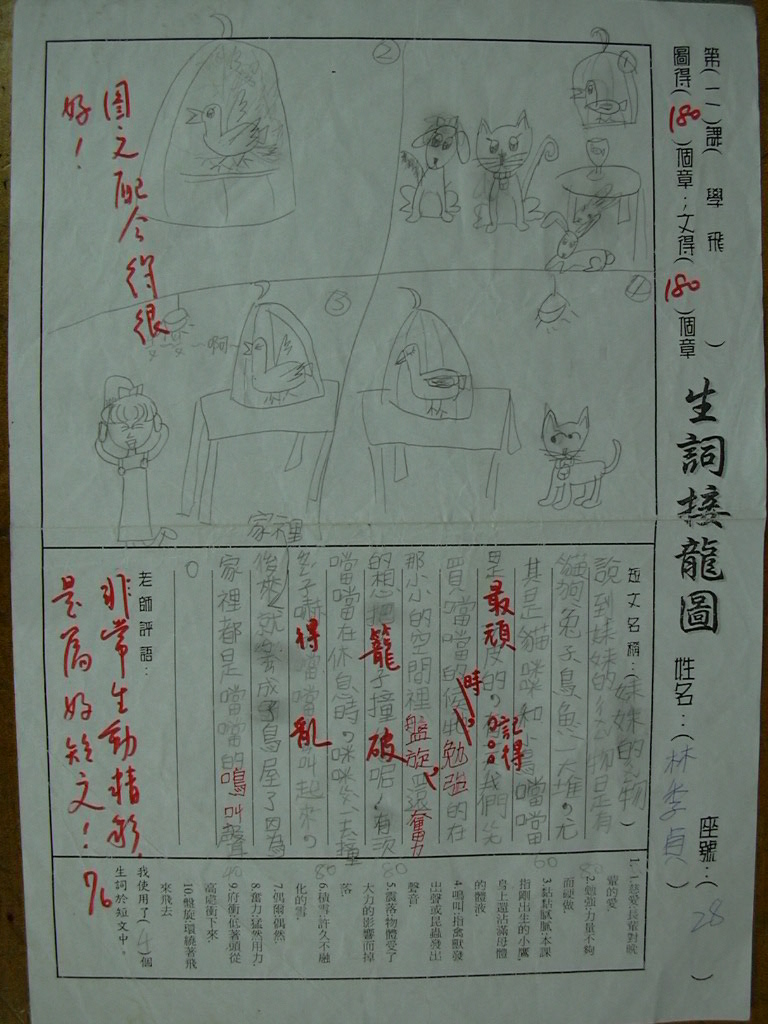 生詞接龍圖
姓名：(林季貞)
座號：(28)
第(一)課(學飛)
圖得(180)個章；文得(180)個章
①
②
圖文配合得很
好！
③
啊
④
短文名稱：(妹妹的
說到妹妹的
物是有
貓狗兔子鳥魚一大堆，尤
其是貓咪和小鳥噹噹
是最頑皮的。記得我們先
買噹噹的時候牠勉強的在
那小小的空間裡盤旋
奮力
的想把籠子撞破呢！有次
噹噹在休息時，咪咪
去撞
嚇得噹噹亂叫起來，
家裡
成了鳥屋了因為
家裡都是噹噹的鳴叫聲
。
老師評語：
非常生動精彩，
是篇好短文！
76
1.慈愛:長輩對晚
輩的愛.
2.勉強:力量不夠
而硬做.
3.黏黏膩膩:本課
指剛出生的小鷹,
身上還沾滿母體
的體液.
4.鳴叫:指禽獸發
出聲或昆蟲發出
聲音
5.震落:物體受了
大力的影響而掉
落
6.積雪:許久不融
化的雪.
7.偶爾:偶然.
8.奮力:猛然用力.
9.府衝:低著頭從
高處衝下來.
10.盤旋:環繞著飛
來飛去
我使用了(4)個
生詞於短文中。